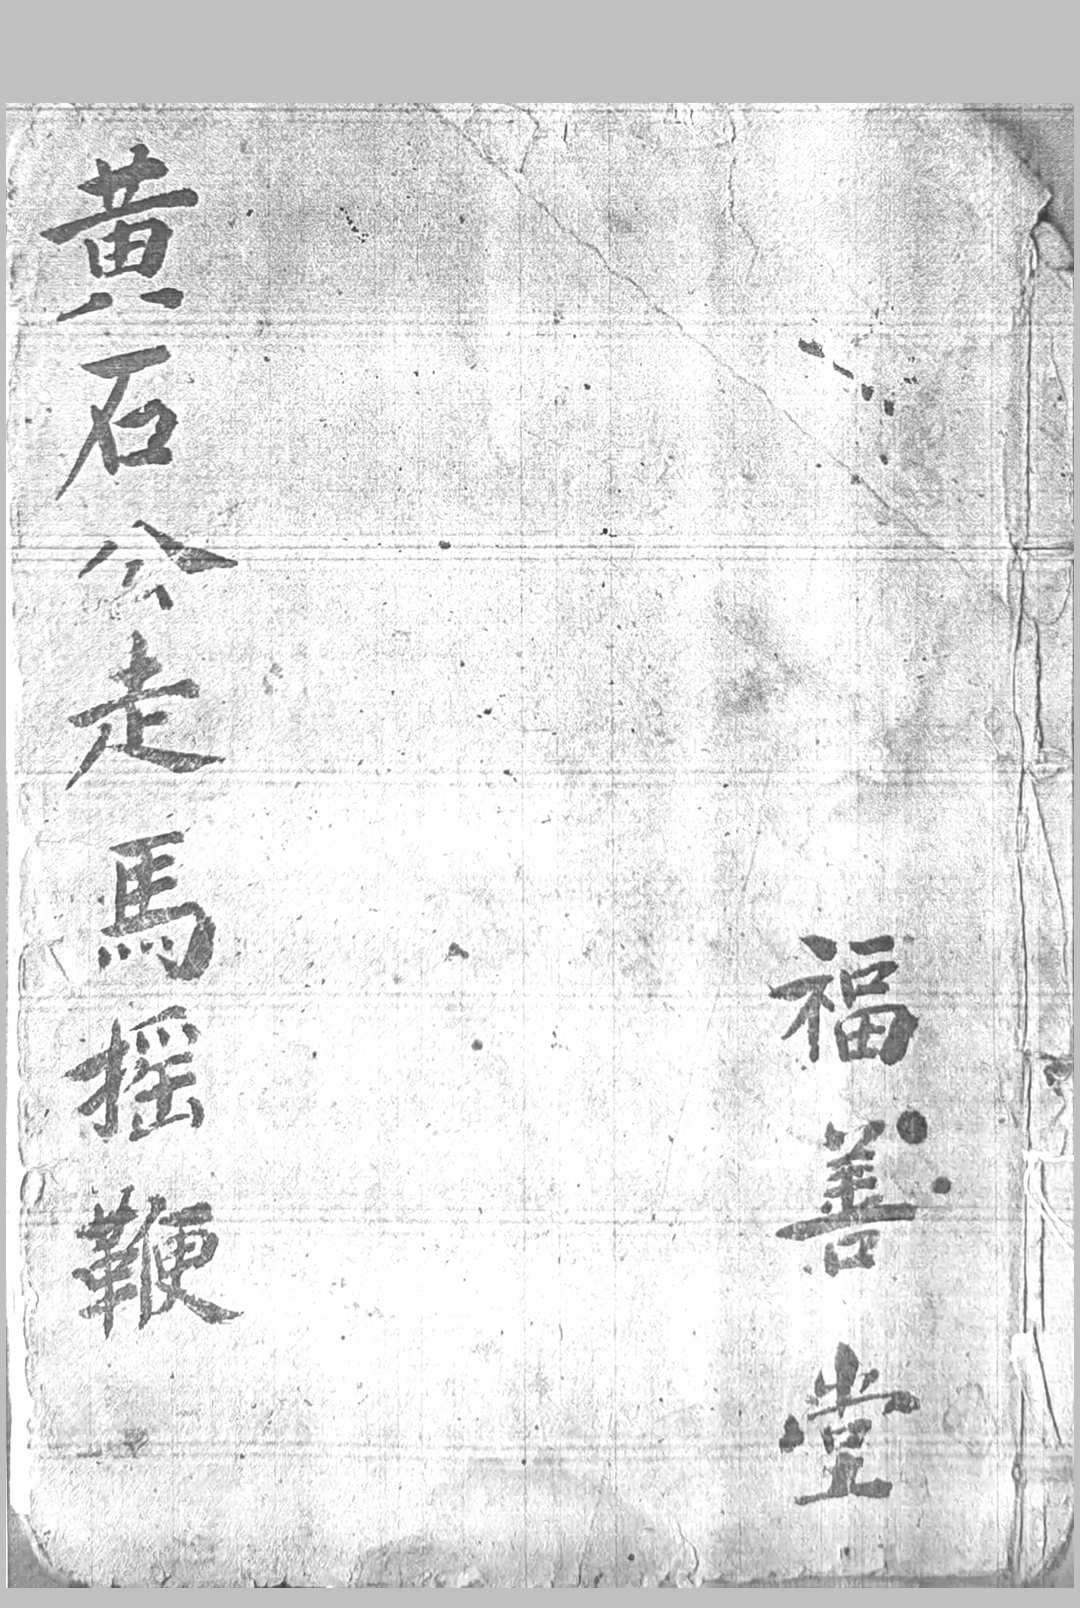 福善堂
黃石公走馬摇鞭